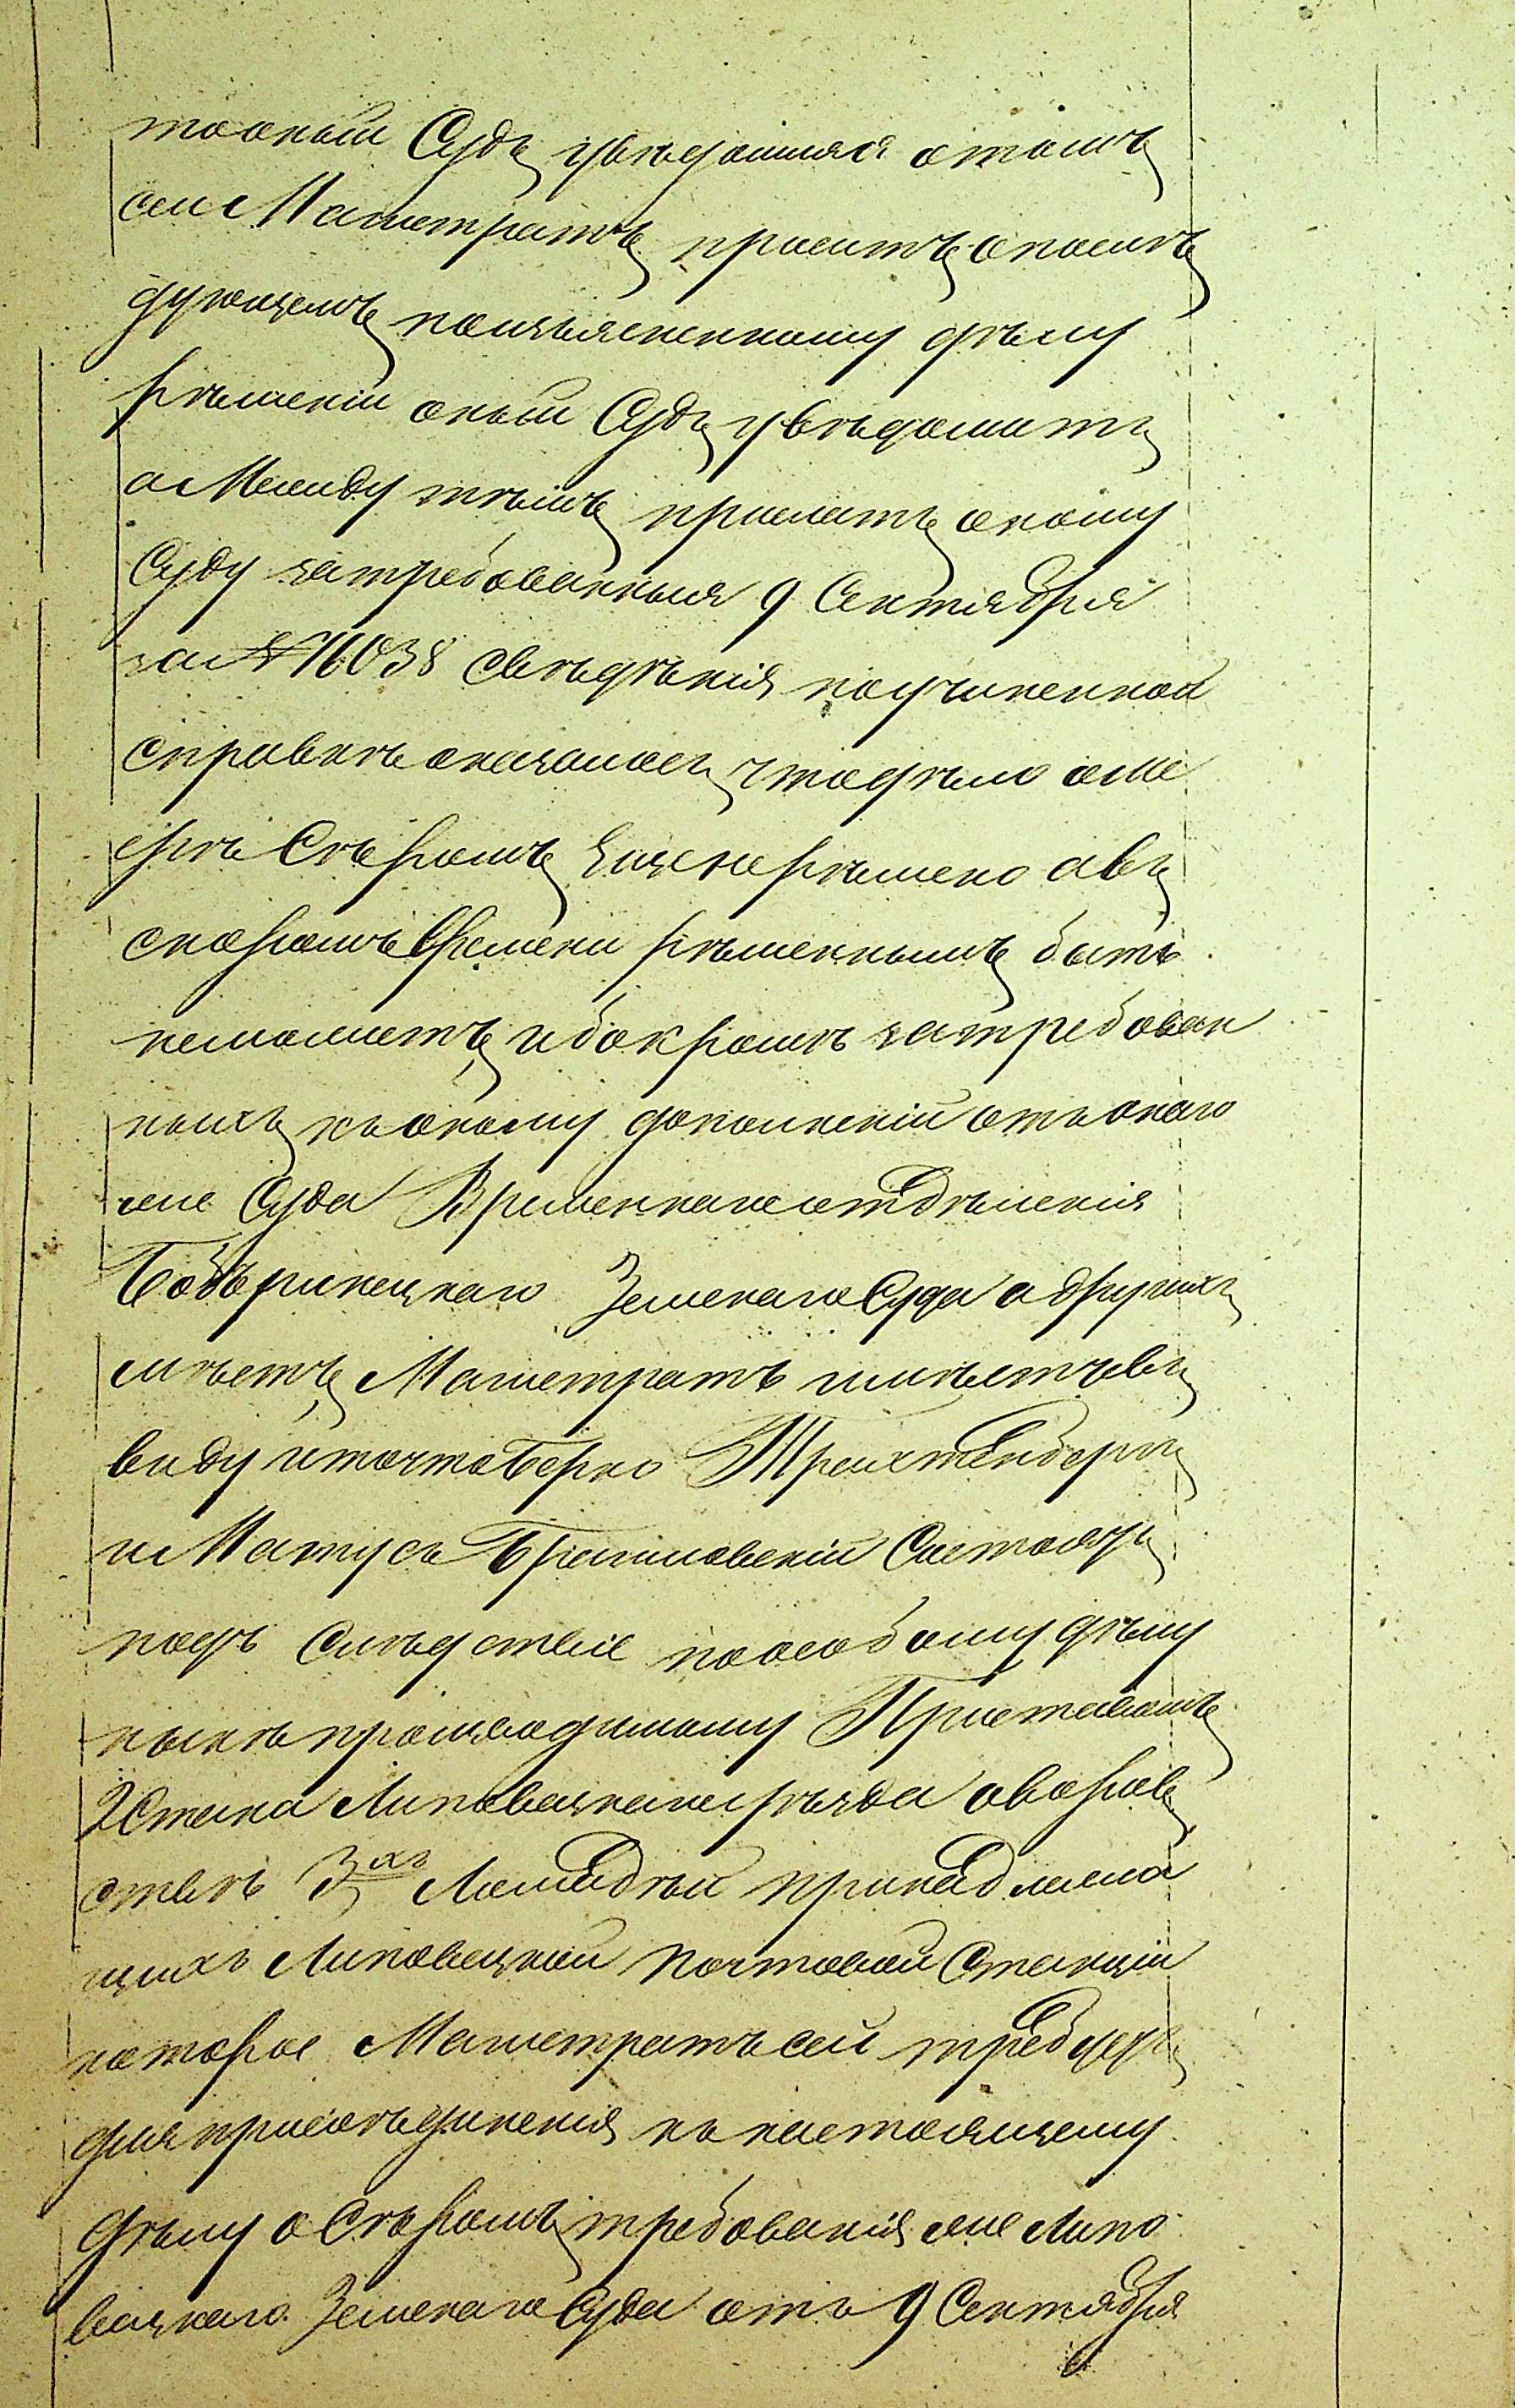 то оный Судъ увѣдомляя отомъ
сей Магистратъ проситъ опослѣ
дующемъ поизъясненному дѣлу
рѣшеніи оный Судъ увѣдомить
а Между тѣмъ прислать оному
Суду затребованныя 9 Сентября
за № 16038 свѣдѣнія поучиненной
справкѣ оказалось, что дѣло оме
ерѣ Сѣромъ Ещенерѣшено авъ
скоромъ Времени рѣшеннымъ быть
неможетъ, ибо кромѣ затребован
ныхъ къ оному дополненій отъ онаго
же Суда Временнаго отдѣленія
Бобринецкаго Земскаго Суда а другихъ
мѣстъ, Магистратъ имѣетъ въ
виду и то что Берко Трахтенбергъ
и Матусъ Браиловскій Состоятъ
подъ Слѣдствіе поособому дѣлу
нынѣ производимому Приставомъ
2 Стана Липовецкаго уѣзда оворов
ствѣ 3хъ Лошадей принадлежа
щихъ Липовецкой Почтовой Станціи
которое Магистратъ сей требуетъ
для присоѣдиненія къ настоящему
дѣлу о Сѣромъ, требованія же Липо
вецкаго Земскаго Суда отъ 9 Сентября